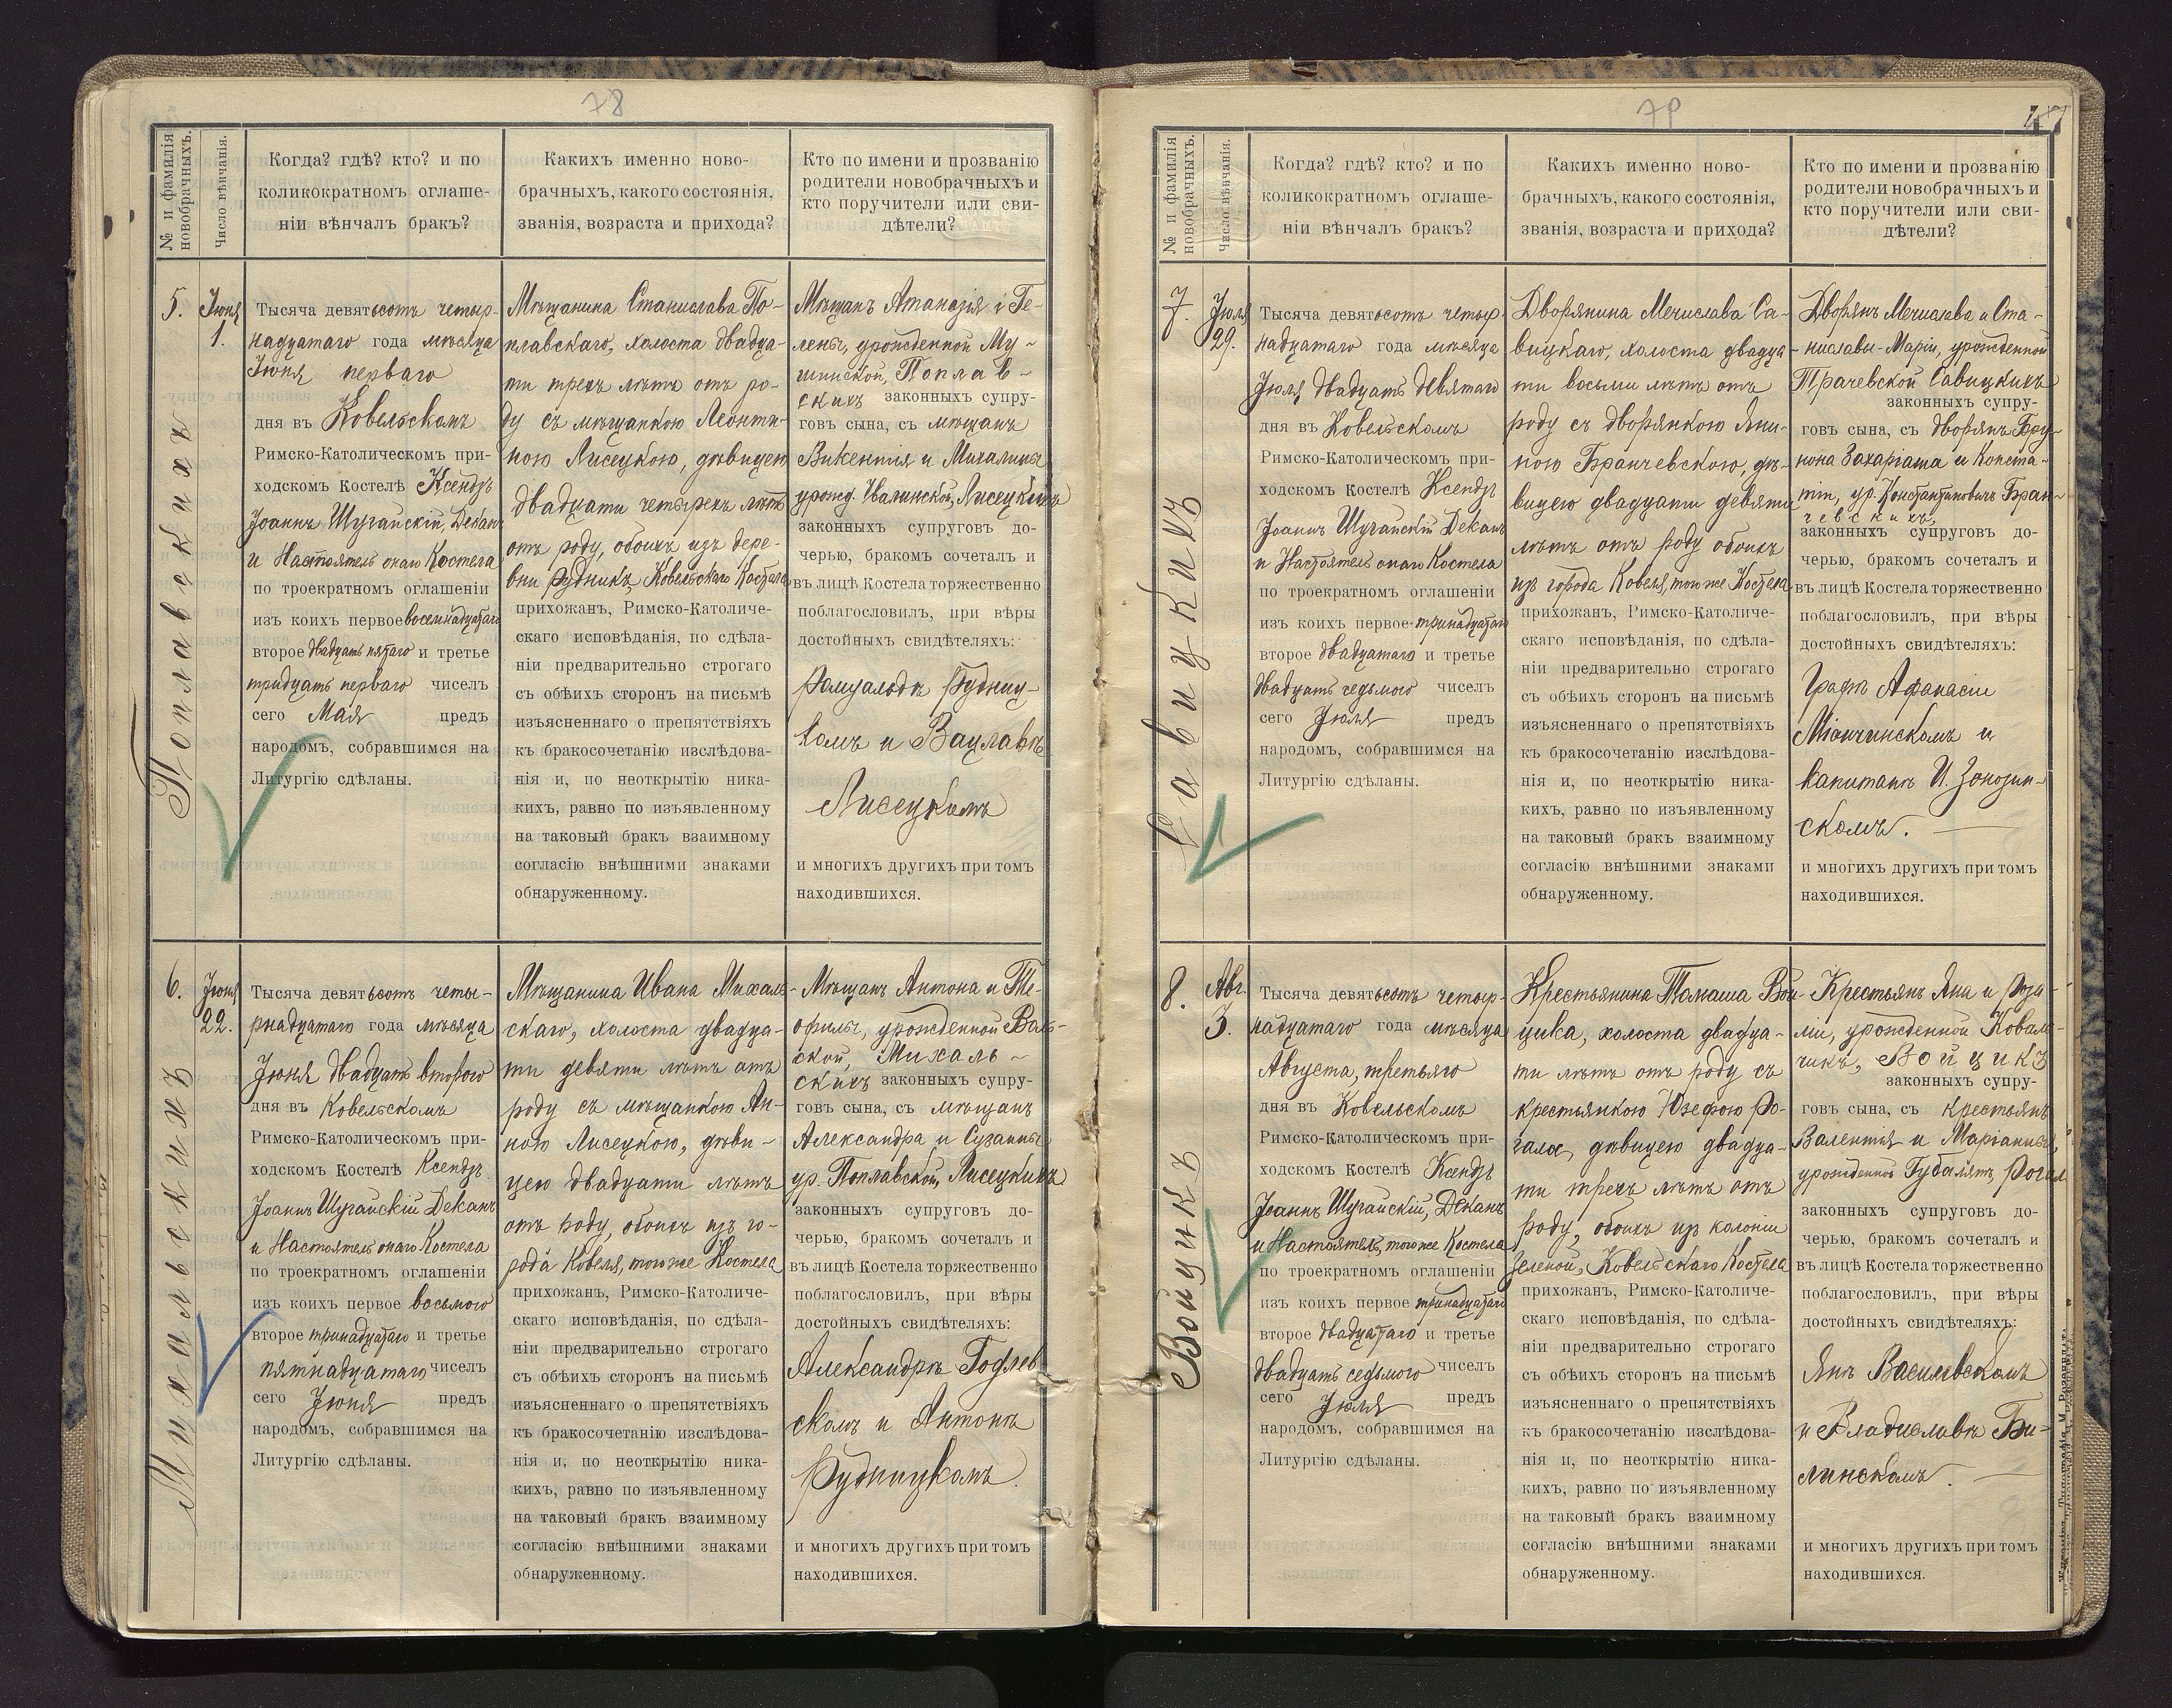 78
№ и фамилія новобрачныхъ.
Число вѣнчанія.
Когда? гдѣ? кто? и по
коликократномъ оглаше-
ніи вѣнчалъ бракъ?
Какихъ именно ново-
брачныхъ, какого состоянія,
званія, возраста и прихода?
Кто по имени и прозванію
родители новобрачныхъ и
кто поручители или сви-
дѣтели?
5.
Поплавскихъ
Іюня
1.
Тысяча девятьсотъ четыр-
надцатаго года мѣсяца
Іюня перваго
дня въ Ковельскомъ
Римско-Католическомъ при-
ходскомъ Костелѣ Ксендзъ
Іоаннъ Шугайскій, Деканъ
и Настоятель онаго Костела
по троекратномъ оглашеніи
изъ коихъ первое восемнадцатаго
второе двадцать пятаго и третье
тридцать перваго чиселъ
сего Мая предъ
народомъ, собравшимся на
Литургію сдѣланы.
Мѣщанина Станислава По-
плавскаго, холоста двадца-
ти трехъ лѣтъ отъ ро-
ду съ мѣщанкою Леонти-
ною Лисецкою, дѣвицею
двадцати четырехъ лѣтъ
отъ роду, обоихъ изъ дере-
вни Рудникъ, Ковельскаго Костела
прихожанъ, Римско-Католиче-
скаго исповѣданія, по сдѣла-
ніи предварительно строгаго
съ обѣихъ сторонъ на письмѣ
изъясненнаго о препятствіяхъ
къ бракосочетанію изслѣдова-
нія и, по неоткрытію ника-
кихъ, равно по изъявленному
на таковый бракъ взаимному
согласію внѣшними знаками
обнаруженному.
Мѣщанъ Атаназія и Ге-
лены, урожденной Му-
шинской, Поплав-
скихъ законныхъ супру-
говъ сына, съ мѣщанъ
Викентія и Михалины
урожд. Ивалинской, Лисецкихъ
законныхъ супруговъ до-
черью, бракомъ сочеталъ и
въ лицѣ Костела торжественно
поблагословилъ, при вѣры
достойныхъ свидѣтеляхъ:
Ромуальдѣ Рудниц-
комъ и Вацлавѣ
Лисецкомъ
и многихъ другихъ при томъ
находившихся.
6.
Михальскихъ
Іюня
22.
Тысяча девятьсотъ четы-
рнадцатаго года мѣсяца
Іюня двадцать второго
дня въ Ковельскомъ
Римско-Католическомъ при-
ходскомъ Костелѣ Ксендзъ
Іоаннъ Шугайскій Деканъ
и Настоятель онаго Костела
по троекратномъ оглашеніи
изъ коихъ первое восьмого
второе тринадцатаго и третье
пятнадцатаго чиселъ
сего Іюня предъ
народомъ, собравшимся на
Литургію сдѣланы.
Мѣщанина Ивана Михаль-
скаго, холоста двадца-
ти девяти лѣтъ отъ
роду съ мѣщанкою Ан-
ною Лисецкою, дѣви-
цею двадцати лѣтъ
отъ роду, обоихъ изъ го-
рода Ковеля, того же Костела
прихожанъ, Римско-Католиче-
скаго исповѣданія, по сдѣла-
ніи предварительно строгаго
съ обѣихъ сторонъ на письмѣ
изъясненнаго о препятствіяхъ
къ бракосочетанію изслѣдова-
нія и, по неоткрытію ника-
кихъ, равно по изъявленному
на таковый бракъ взаимному
согласію внѣшними знаками
обнаруженному.
Мѣщанъ Антона и Те-
офилы, урожденной Валь-
ской, Михаль-
скихъ законныхъ супру-
говъ сына, съ мѣщанъ
Александра и Сузанны
ур. Поплавской, Лисецкихъ
законныхъ супруговъ до-
черью, бракомъ сочеталъ и
въ лицѣ Костела торжественно
поблагословилъ, при вѣры
достойныхъ свидѣтеляхъ:
Александрѣ Годлев-
скомъ и Антонѣ
Рудницкомъ.
и многихъ другихъ при томъ
находившихся.
79
47
№ и фамилія новобрачныхъ.
Число вѣнчанія.
Когда? гдѣ? кто? и по
коликократномъ оглаше-
ніи вѣнчалъ бракъ?
Какихъ именно ново-
брачныхъ, какого состоянія,
званія, возраста и прихода?
Кто по имени и прозванію
родители новобрачныхъ и
кто поручители или сви-
дѣтели?
7.
Савицкихъ
Іюля
29.
Тысяча девятьсотъ четыр-
надцатаго года мѣсяца
Іюля двадцать девятаго
дня въ Ковельскомъ
Римско-Католическомъ при-
ходскомъ Костелѣ Ксендзъ
Іоаннъ Шугайскій Деканъ
и Настоятель онаго Костела
по троекратномъ оглашеніи
изъ коихъ первое тринадцатаго
второе двадцатаго и третье
двадцать седьмого чиселъ
сего Іюля предъ
народомъ, собравшимся на
Литургію сдѣланы.
Дворянина Мечислава Са-
вицкаго, холоста двадца-
ти восьми лѣтъ отъ
роду съ дворянкою Яни-
ною Бранчевскою, дѣ-
вицею двадцати девяти
лѣтъ отъ роду обоихъ
изъ города Ковеля, того же Костела
прихожанъ, Римско-Католиче-
скаго исповѣданія, по сдѣла-
ніи предварительно строгаго
съ обѣихъ сторонъ на письмѣ
изъясненнаго о препятствіяхъ
къ бракосочетанію изслѣдова-
нія и, по неоткрытію ника-
кихъ, равно по изъявленному
на таковый бракъ взаимному
согласію внѣшними знаками
обнаруженному.
Дворянъ Мечислава и Ста-
ниславы-Маріи, урожденной
Трачевской Савицкихъ
законныхъ супру-
говъ сына, съ дворянъ Бру-
нона Захаріаша и Конста-
нти, ур. Константиновичъ Бран-
чевскихъ,
законныхъ супруговъ до-
черью, бракомъ сочеталъ и
въ лицѣ Костела торжественно
поблагословилъ, при вѣры
достойныхъ свидѣтеляхъ:
Графѣ Афанасіи
Міончинскомъ и
капитанѣ И. Зонзин-
скомъ.
и многихъ другихъ при томъ
находившихся.
8.
Войцикъ
Авг.
3.
Тысяча девятьсотъ четыр-
надцатаго года мѣсяца
Августа, третьяго
дня въ Ковельскомъ
Римско-Католическомъ при-
ходскомъ Костелѣ Ксендзъ
Іоаннъ Шугайскій, Деканъ
и Настоятель, того же Костела
по троекратномъ оглашеніи
изъ коихъ первое тринадцатаго
второе двадцатаго и третье
двадцать седьмого чиселъ
сего Іюля предъ
народомъ, собравшимся на
Литургію сдѣланы.
Крестьянина Томаша Вой-
цика, холоста двадца-
ти лѣтъ отъ роду съ
крестьянкою Юзефою Ро-
гала, дѣвицею двадца-
ти трехъ лѣтъ отъ
роду, обоихъ изъ колоніи
Зеленой, Ковельскаго Костела
прихожанъ, Римско-Католиче-
скаго исповѣданія, по сдѣла-
ніи предварительно строгаго
съ обѣихъ сторонъ на письмѣ
изъясненнаго о препятствіяхъ
къ бракосочетанію изслѣдова-
нія и, по неоткрытію ника-
кихъ, равно по изъявленному
на таковый бракъ взаимному
согласію внѣшними знаками
обнаруженному.
Крестьянъ Яна и Роза-
ліи, урожденной Коваль-
чикъ, Войцикъ
законныхъ супру-
говъ сына, съ крестьянъ
Валентія и Маріанны,
урожденной Губалятъ, Рогал
законныхъ супруговъ до-
черью, бракомъ сочеталъ и
въ лицѣ Костела торжественно
поблагословилъ, при вѣры
достойныхъ свидѣтеляхъ:
Янѣ Василевскомъ
и Владиславѣ Би-
линскомъ.
и многихъ другихъ при томъ
находившихся.